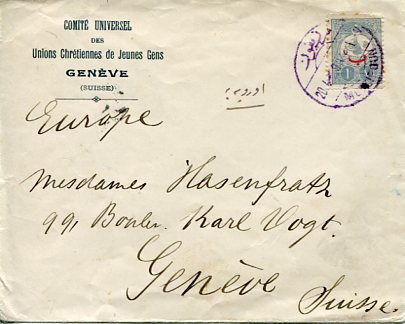 COMITÉ UNIVERSEL
DES
Unions Chrétiennes de Jeunes Gens
GENÈVE
(SUISSE)
اوروپا
Europe
Mesdames Hasenfratz
99, Boulev. Karl Vogt.
Genève
Suisse
1